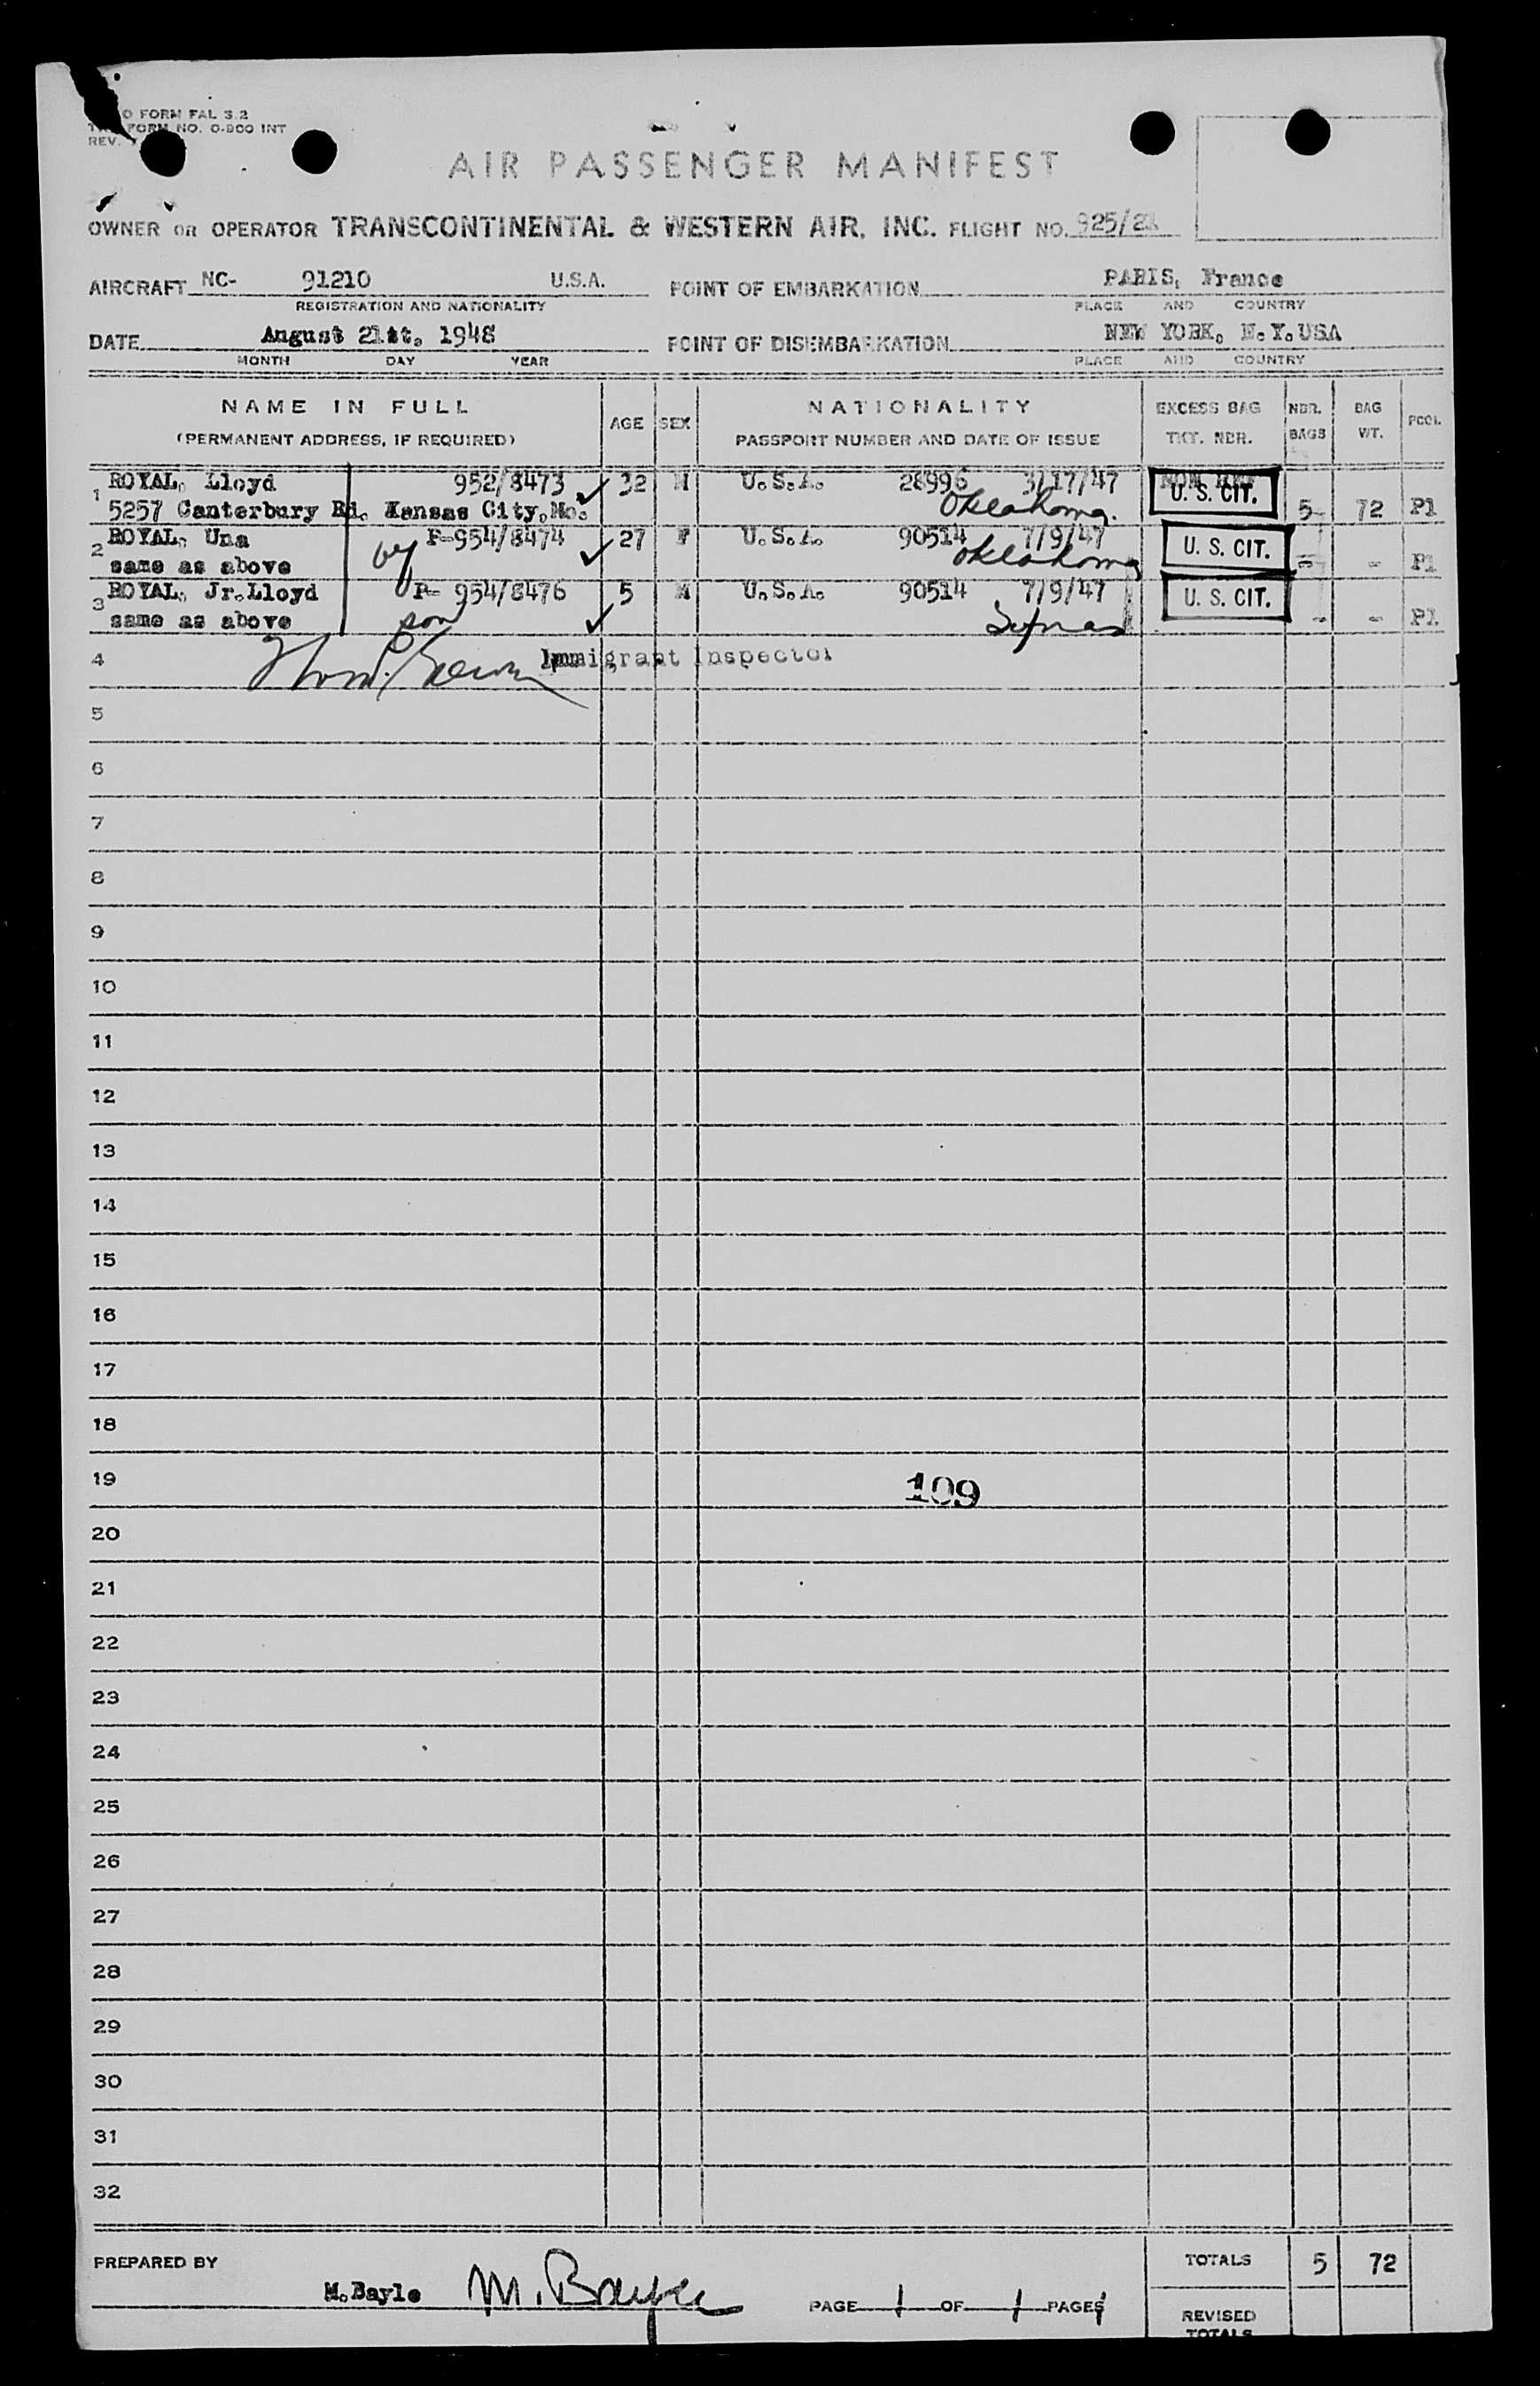 O FORM FAL 3.2
FORM NO. O-800 INT
REV.
AIR PASSENGER MANIFEST
OWNER OR OPERATOR TRANSCONTINENTAL & WESTERN AIR, INC. FLIGHT NO. 925/21
AIRCRAFT NC- 91210 U.S.A. POINT OF EMBARKATION PARIS, France
REGISTRATION AND NATIONALITY PLACE AND COUNTRY
DATE August 21st. 1948 POINT OF DISEMBARKATION NEW YORK, N.Y.USA
MONTH DAY YEAR PLACE AND COUNTRY
NAME IN FULL AGE SEX NATIONALITY EXCESS BAG NBR. BAG POOL
(PERMANENT ADDRESS, IF REQUIRED) PASSPORT NUMBER AND DATE OF ISSUE TKT. NBR. BAGS WT.
1 ROYAL, Lloyd 952/8473 ✓ 32 M U.S.A. 28996 3/17/47 U. S. CIT.
5257 Canterbury Rd. Kansas City,Mo. Oklahoma. 5 72 Pl
2 ROYAL, Una F-954/8474 ✓ 27 F U.S.A. 90514 7/9/47 U. S. CIT.
same as above Oklahoma - - Pl
3 ROYAL, Jr.Lloyd P- 954/8476 5 M U.S.A. 90514 7/9/47 U. S. CIT.
same as above son ✓ - - Pl
4 Immigrant Inspector
5
6
7
8
9
10
11
12
13
14
15
16
17
18
19 109
20
21
22
23
24
25
26
27
28
29
30
31
32
PREPARED BY TOTALS 5 72
M.Bayle M. Bayle PAGE 1 OF 1 PAGES
REVISED
TOTALS